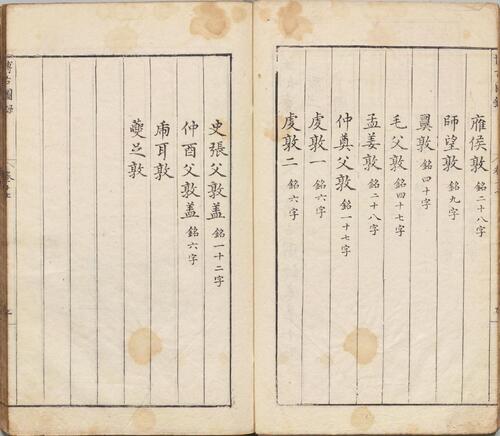 雁侯敦 銘二十八字
師望敦 銘九字
翼敦 銘四十字
毛父敦 銘四十七字
孟姜敦 銘二十八字
仲奠父敦 銘一十七字
虔敦一 銘六字
虔敦二 銘六字
史張父敦盖 銘一十二字
仲酉父敦盖 銘六字
耳敦
夔足敦
博古圖録